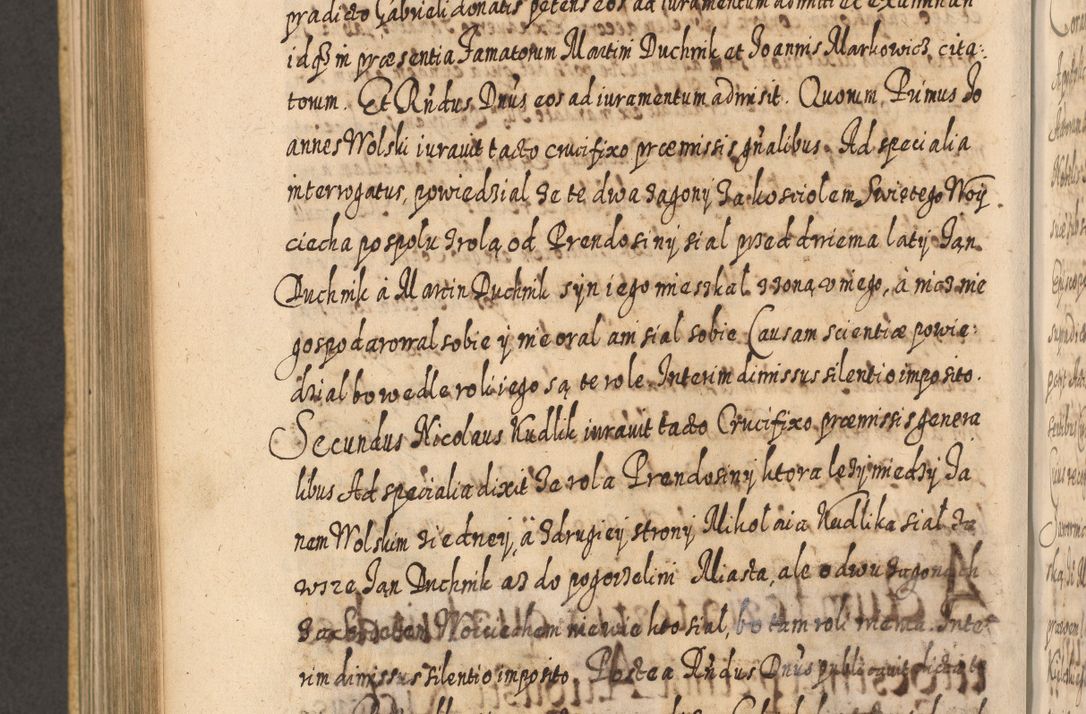 prædicto Gabrieli donatis petens eos ad iuramentum admitti et examinari
idq3 in præsentia Famatorum Martini Duchnik et Joannis Markowicz, cita:
torum. Et Rñdus Dnus eos ad iuramentum admisit. Quorum Primus Jo
annes Wolski iurauit tacto crucifixo præmissis gñalibus. Ad specialia
interrogatus, powiedzial ze te dwa zagony za kosciolem Swiętego Woy
ciecha pospolu z rolą od Prendosiny sial przed dwiema laty Jan
Duchnik à Martin Duchnik syn iego mieszkal z zoną w niego, à nicz nie
gospodarowal sobie y nie oral ani sial sobie. Causam scientiæ powie:
dzial bo wedle roli iego są te role. Interim dimissus silentio imposito.
Secundus Nicolaus Kudlik iurauit tacto Crucifixo præmissis genera
libus Ad specialia dixit ze rola Prendosiny ktora lezy miedzy Ja
nem Wolskim z iedney, à z drugiey strony Mikolaia Kudlika sial za
wsze Jan Duchnik az do pogorzelini Miasta, ale o dwu zagonach
za Woiciechem niewie kto sial, bo tam roli niema. Inte
rim dimissus silentio imposito. Postea Rñdus Dnus publicauit dicta te